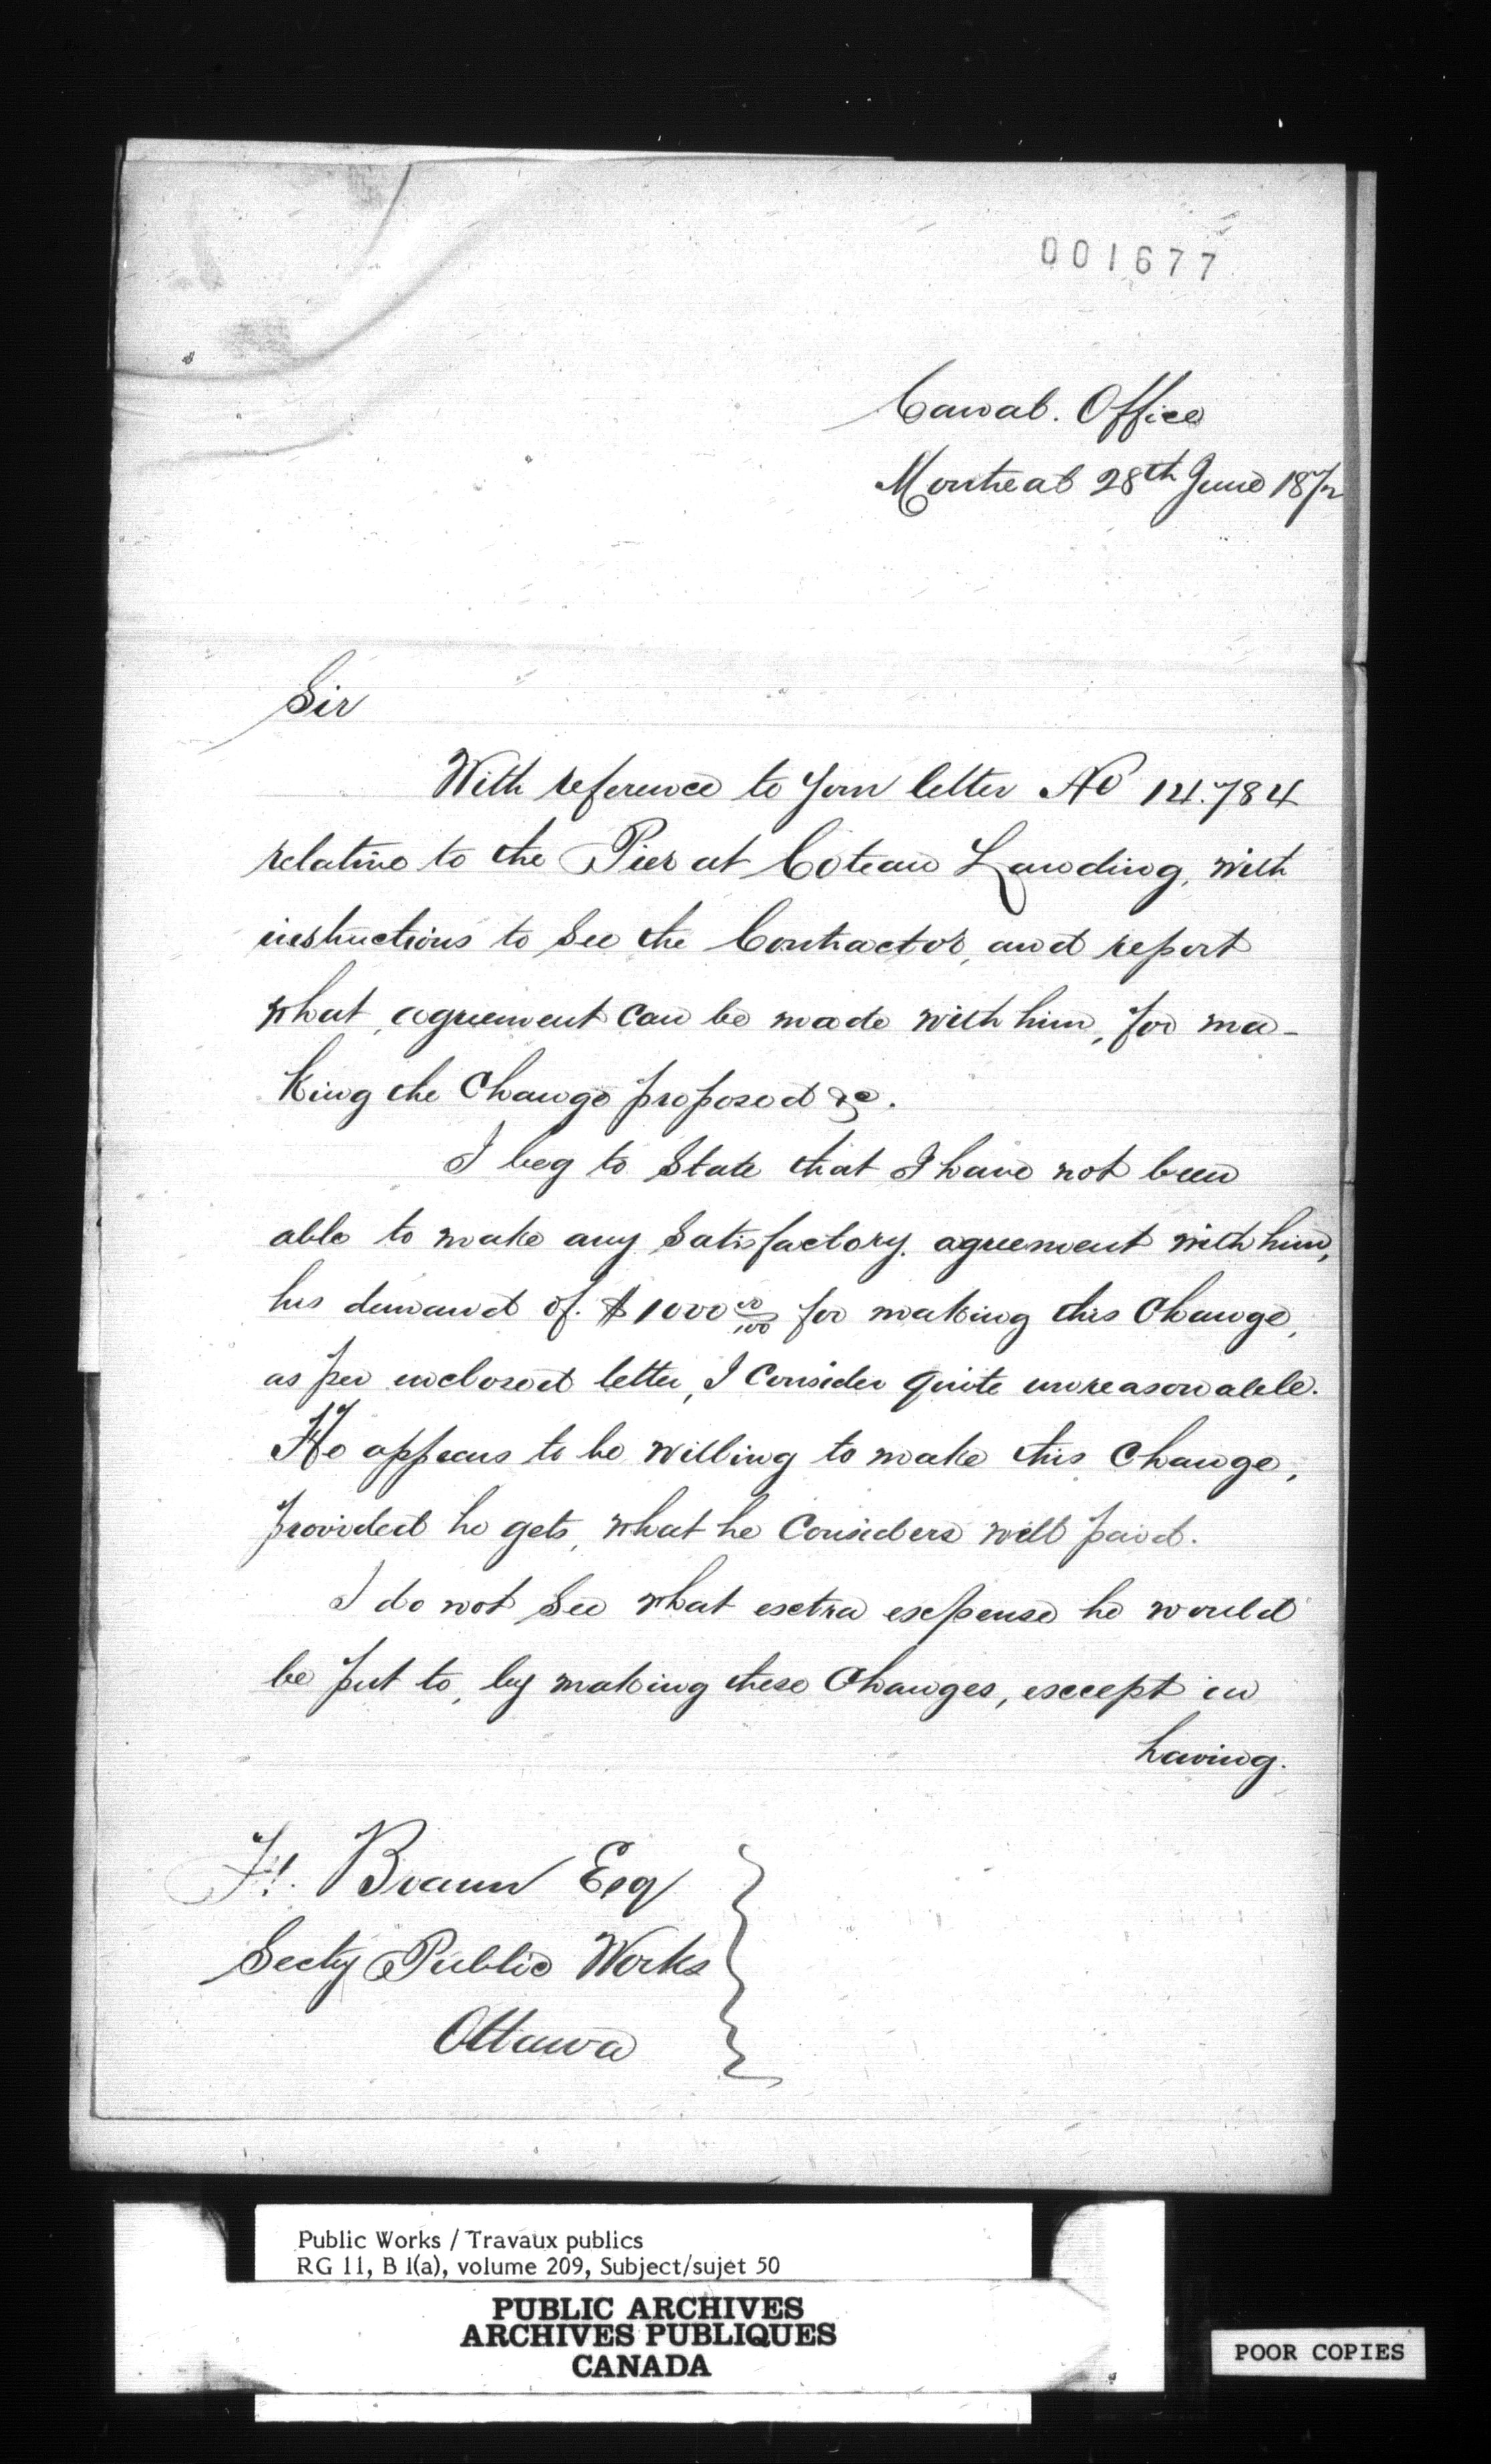 001677
Canal. Office
Montreal 28th June 1872
Sir
With reference to your letter No 14.784
relative to the Pier at Coteau Landing, with
instructions to See the Contractor, and report
what agreement can be made with him, for ma-
king the Change proposed &c.
I beg to State that I have not been
able to make any Satisfactory agreement with him,
his demand of $1000 00/100 for making this Change,
as per enclosed letter, I Consider quite unreasonable.
He appears to be willing to make this Change,
provided he gets, what he Considers well paid.
I do not See what extra expense he would
be put to, by making these Changes, except in
having.
Fs. Braun Esq
Secty Public Works
Ottawa
Public Works / Travaux publics
RG 11, B 1(a), volume 209, Subject/sujet 50
PUBLIC ARCHIVES
ARCHIVES PUBLIQUES
CANADA
POOR COPIES